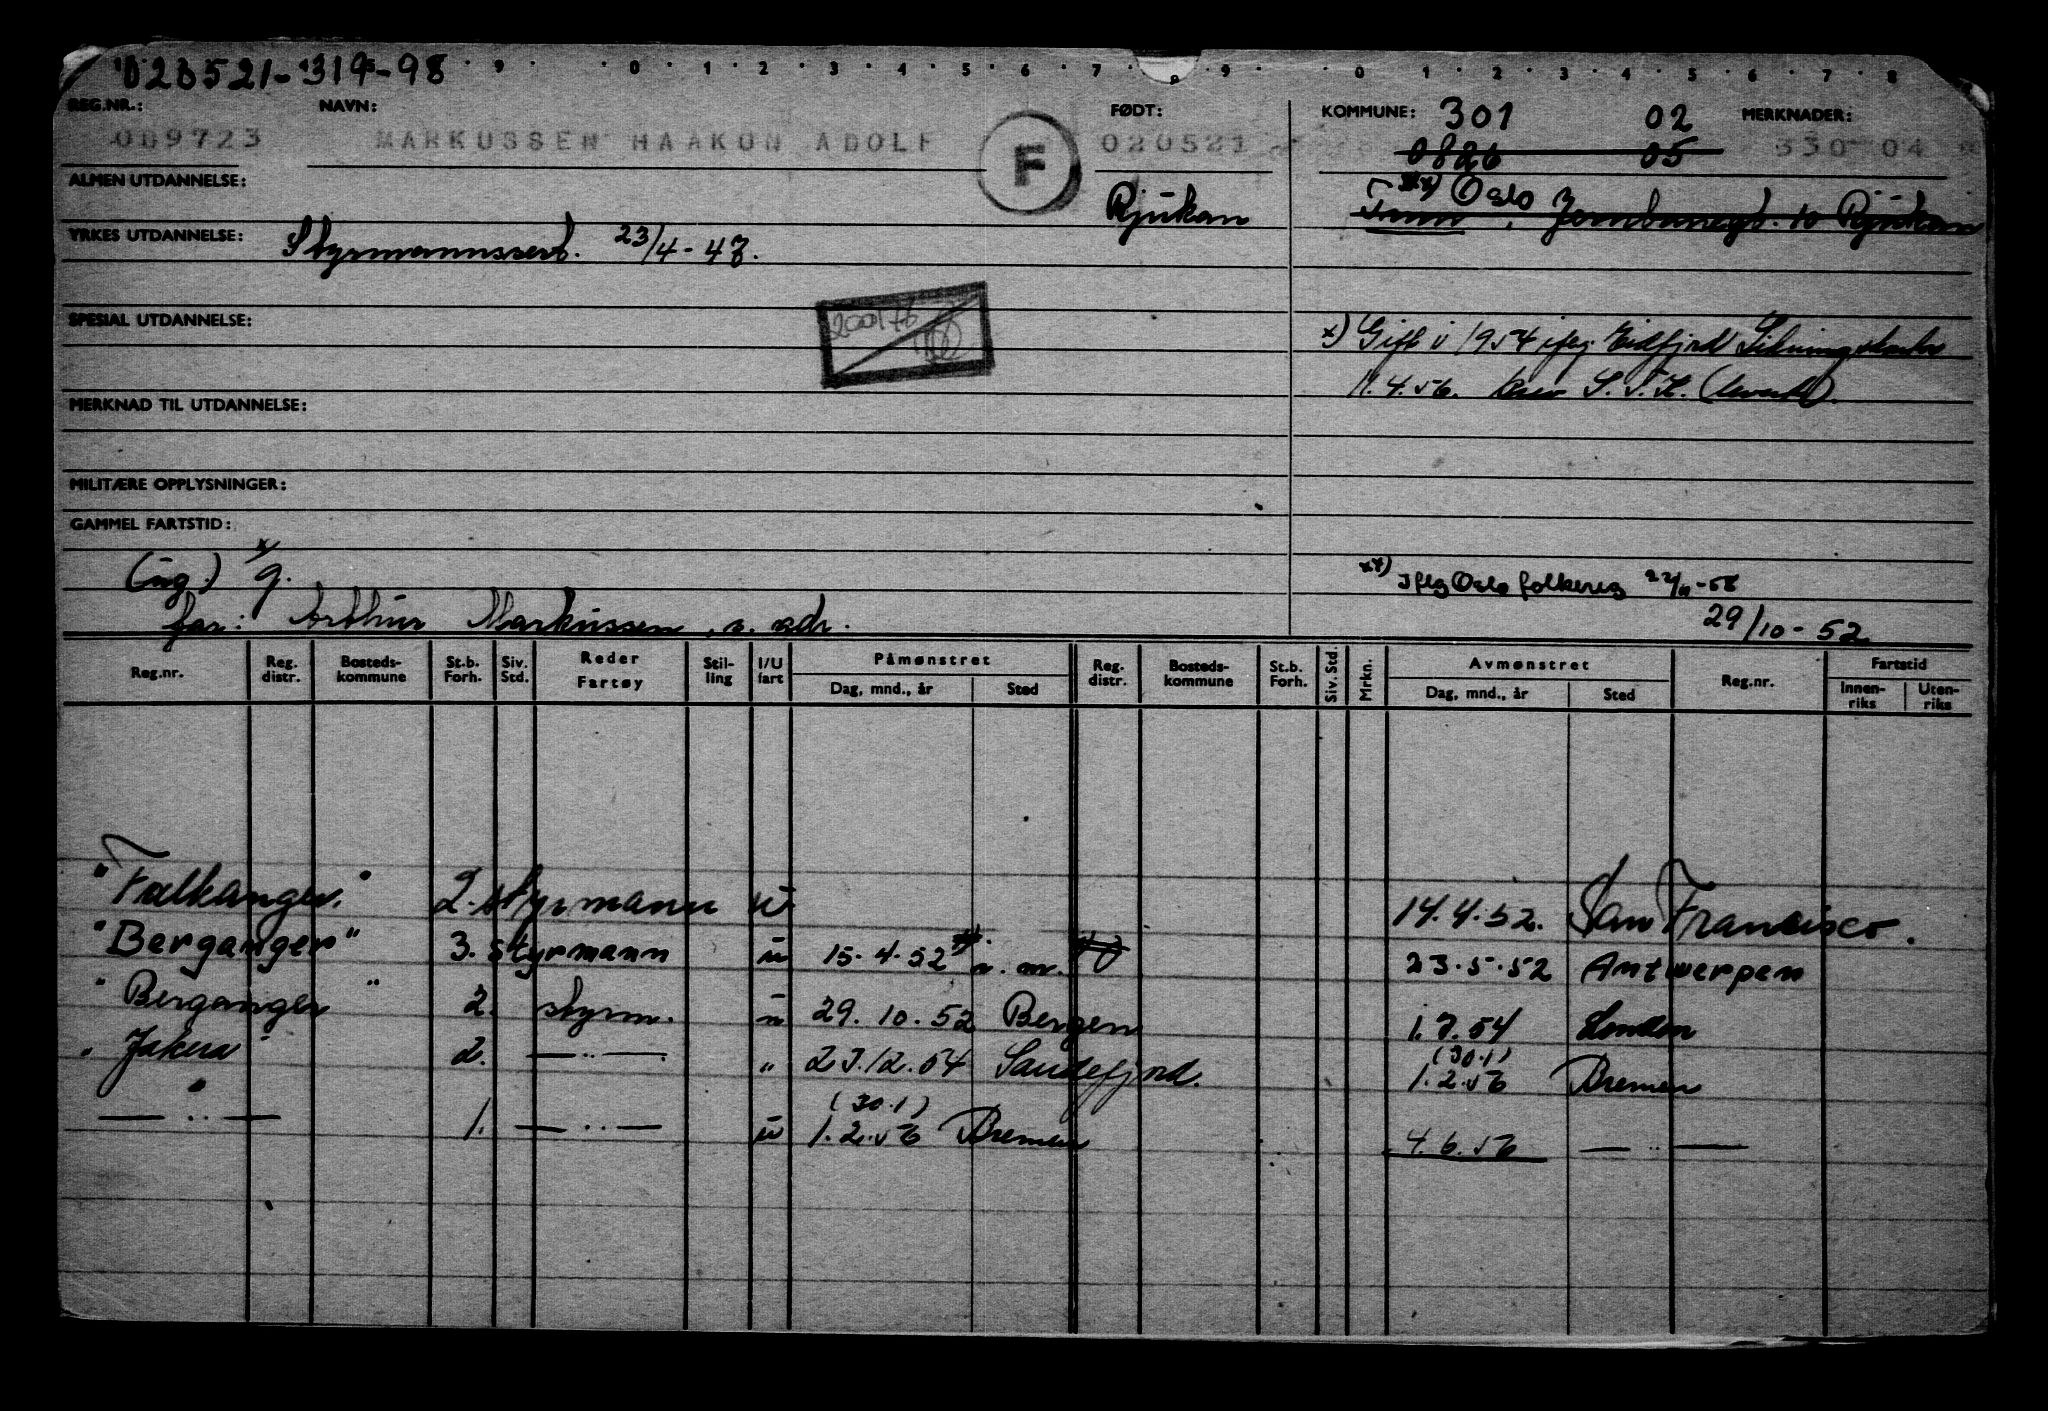 020521-319-98
9 0 1 2 3 4 5 6 7 8 9 0 1 2 3 4 5 6 7 8
REG.NR.: NAVN: FØDT: KOMMUNE: 301 02 MERKNADER:
009723 MARKUSSEN HAAKON ADOLF F 020521 0826 05 330 04
ALMEN UTDANNELSE: Rjukan xx) Oslo
Tinn, Jernbanegt. 10 Rjukan
YRKES UTDANNELSE: Styrmannssert. 23/4-47.
SPESIAL UTDANNELSE: 200176
x) Gift i 1954 iflg. Eidfjord
11.4.56. brev
MERKNAD TIL UTDANNELSE:
MILITÆRE OPPLYSNINGER:
GAMMEL FARTSTID:
(ug.) x/ g. xx) Iflg Oslo folkereg 22/11-58
far: Arthur Markussen, s. adr. 29/10-52
Reg.nr. Reg. distr. Bosteds-kommune St.b. Forh. Siv. Std. Reder Fartøy Stil-ling I/U fart Påmønstret Dag, mnd., år Sted Reg. distr. Bosteds-kommune St.b. Forh. Siv. Std. Mrkn. Avmønstret Dag, mnd., år Sted Reg.nr. Fartstid Innen-riks Uten-riks
"Falkanger." 2. styrmann u 14.4.52. San Francisco.
"Berganger" 3. styrmann u 15.4.52 u. m. 23.5.52 Antwerpen
"Berganger" 2. styrm. u 29.10.52 Bergen 1.7.54 London
"Jakera" 2. — " — " 23.12.54 Sandefjord. (30.1) 1.2.56 Bremen
— " — 1. — " — u (30.1) 1.2.56 Bremen 4.6.56 — " —